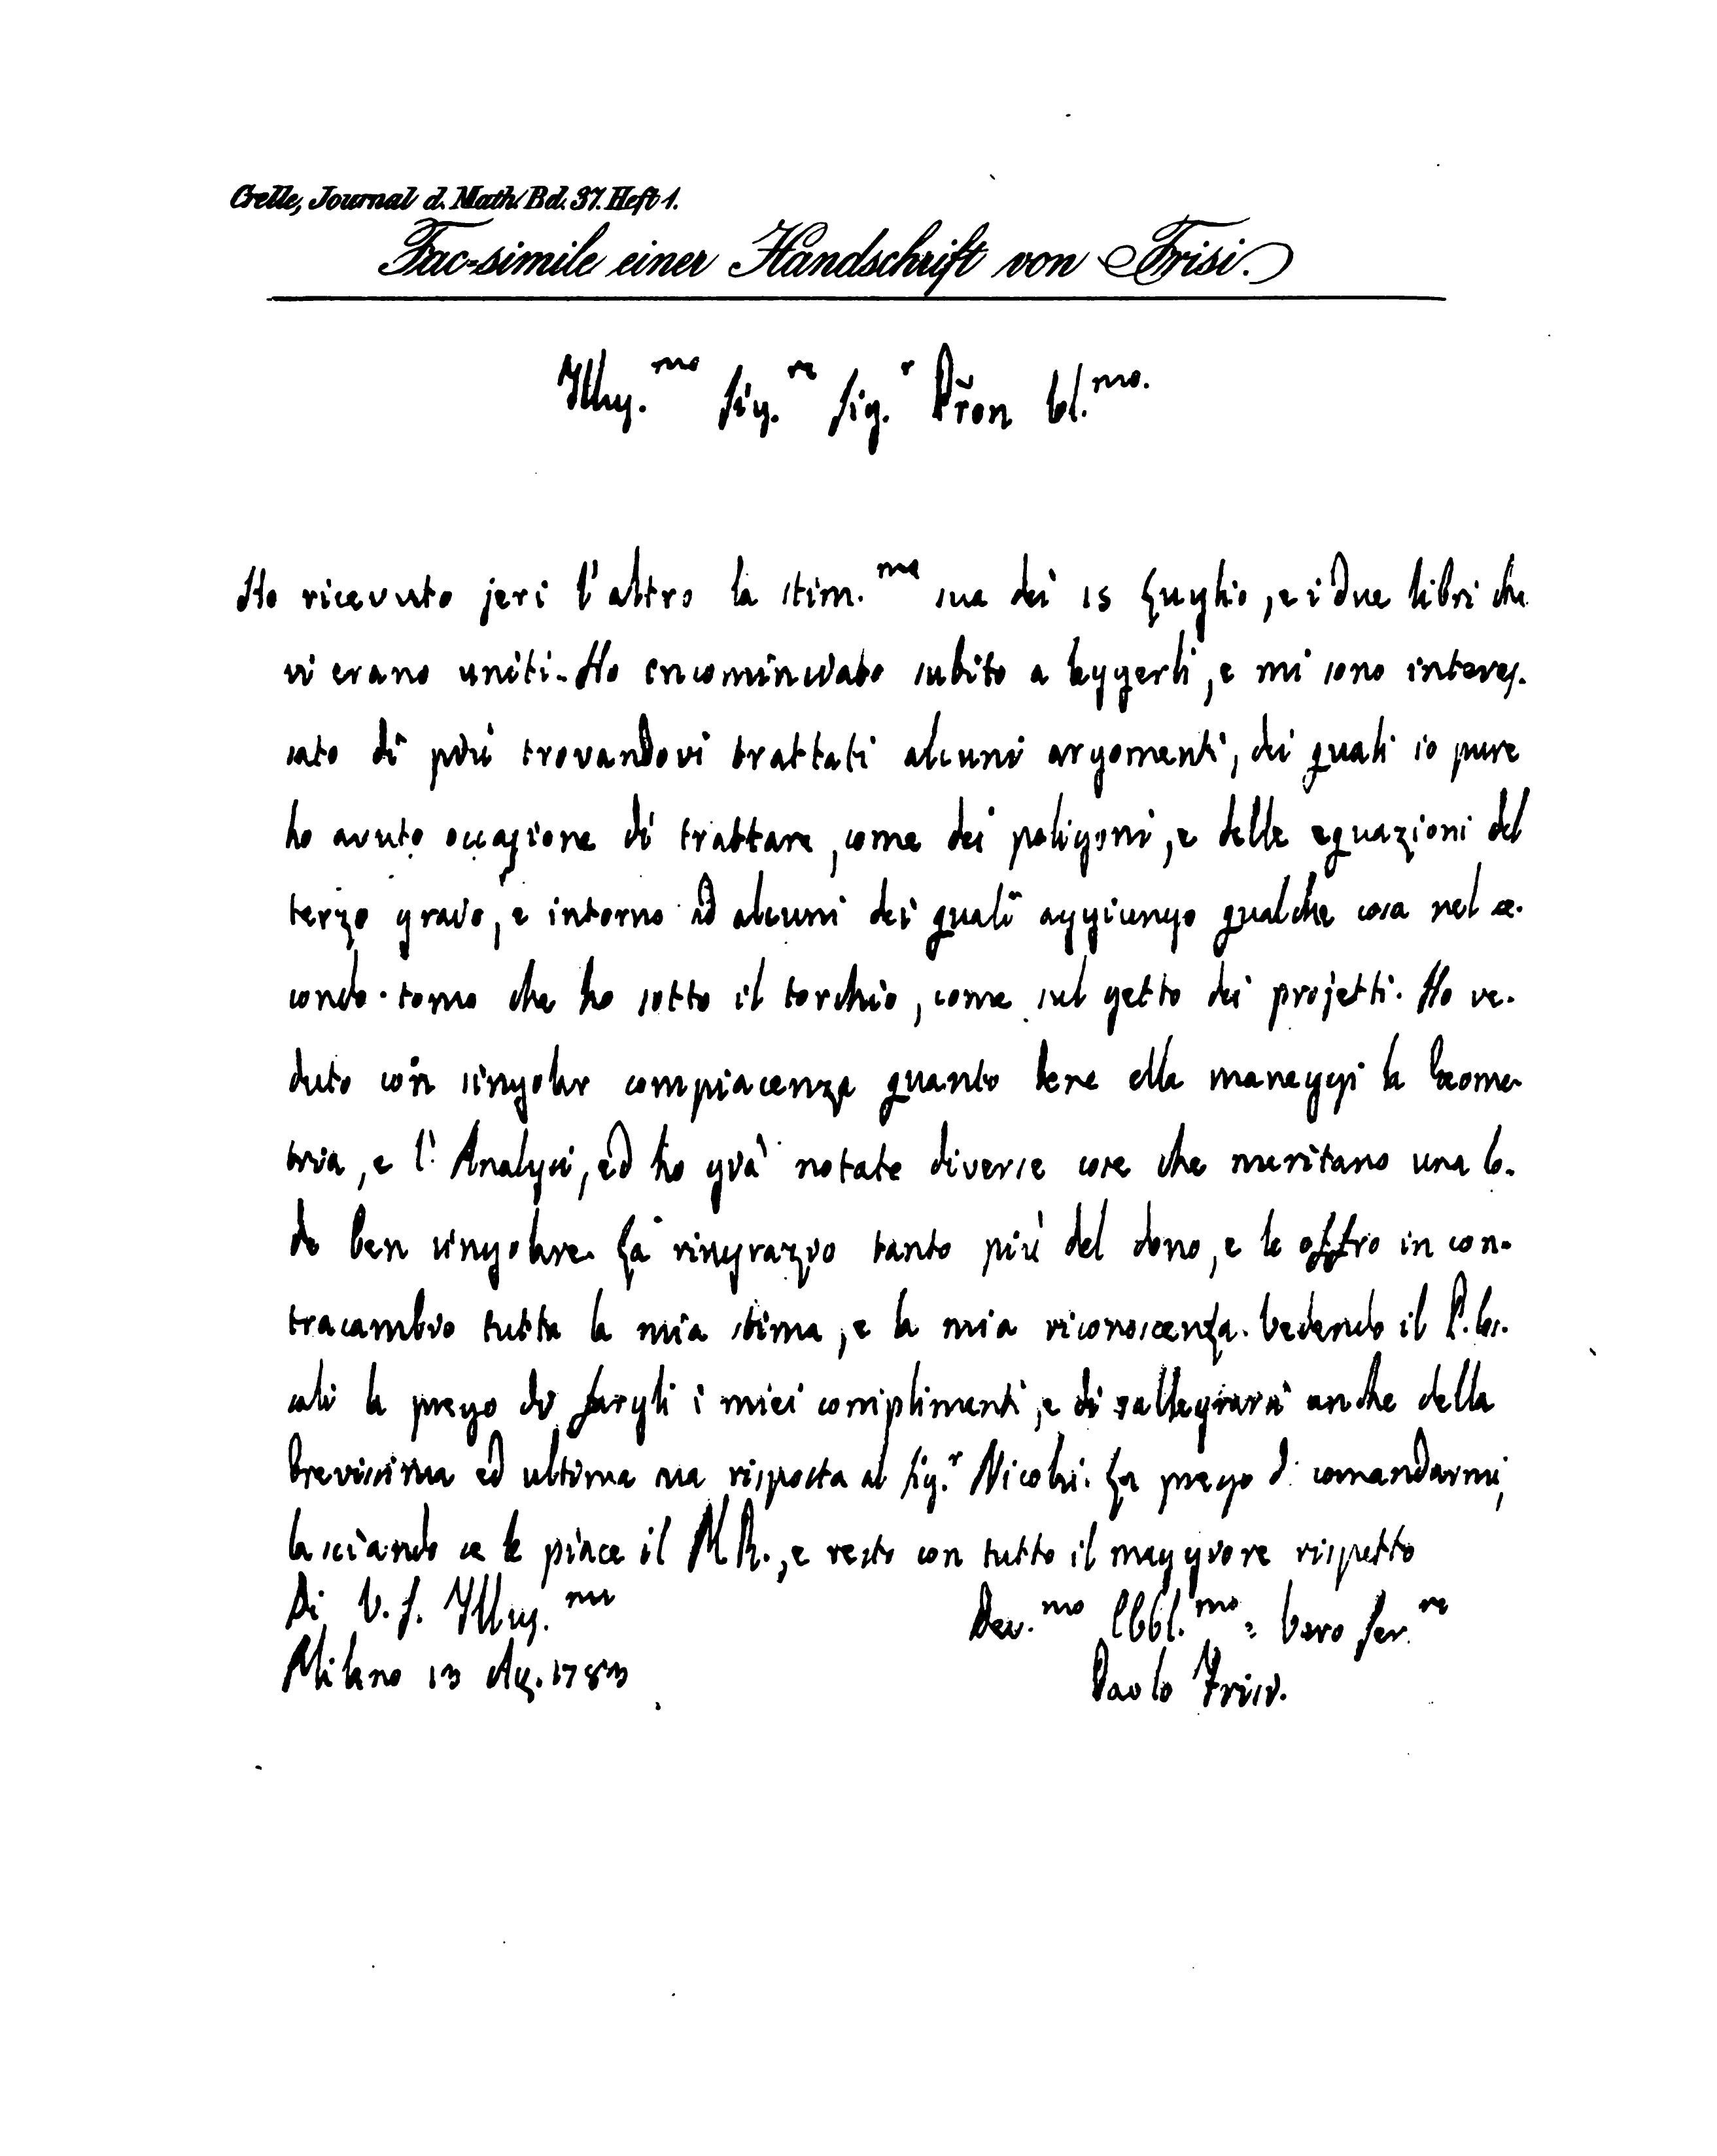 Crelle, Journal d. Math. Bd. 37. Heft 1.
Fac-simile einer Handschrift von Frisi.
Illus.mo Sig.re Sig.r Pron Col.mo.
Ho ricevuto jeri l'altro la stim.ma sua dei 15 Luglio, e i due libri che
vi erano uniti. Ho incominciato subito a leggerli, e mi sono interes-
sato di più trovandovi trattati alcuni argomenti, dei quali io pure
ho avuto occasione di trattare, come dei poligoni, e delle equazioni del
terzo grado, e intorno ad alcuni dei quali aggiungo qualche cosa nel se-
condo tomo che ho sotto il torchio, come sul getto dei projetti. Ho ve-
duto con singolar compiacenza quanto bene ella maneggi la Geome-
tria, e l'Analysi, ed ho già notate diverse cose che meritano una lo-
de ben singolare. La ringrazio tanto più del dono, e le offro in con-
tracambio tutta la mia stima, e la mia riconoscenza. Vedendo il P.
la prego di fargli i miei complimenti, e di rallegrarsi anche della
brevissima ed ultima sua risposta al Sig.r Nicolai. La prego di comandarmi,
lasciando se le piace il M.R., e resto con tutto il maggiore rispetto
Di V. S. Illus.ma
Dev.mo Obbl.mo: vero Ser.re
Milano 13 Ag. 1783
Paolo Frisi.